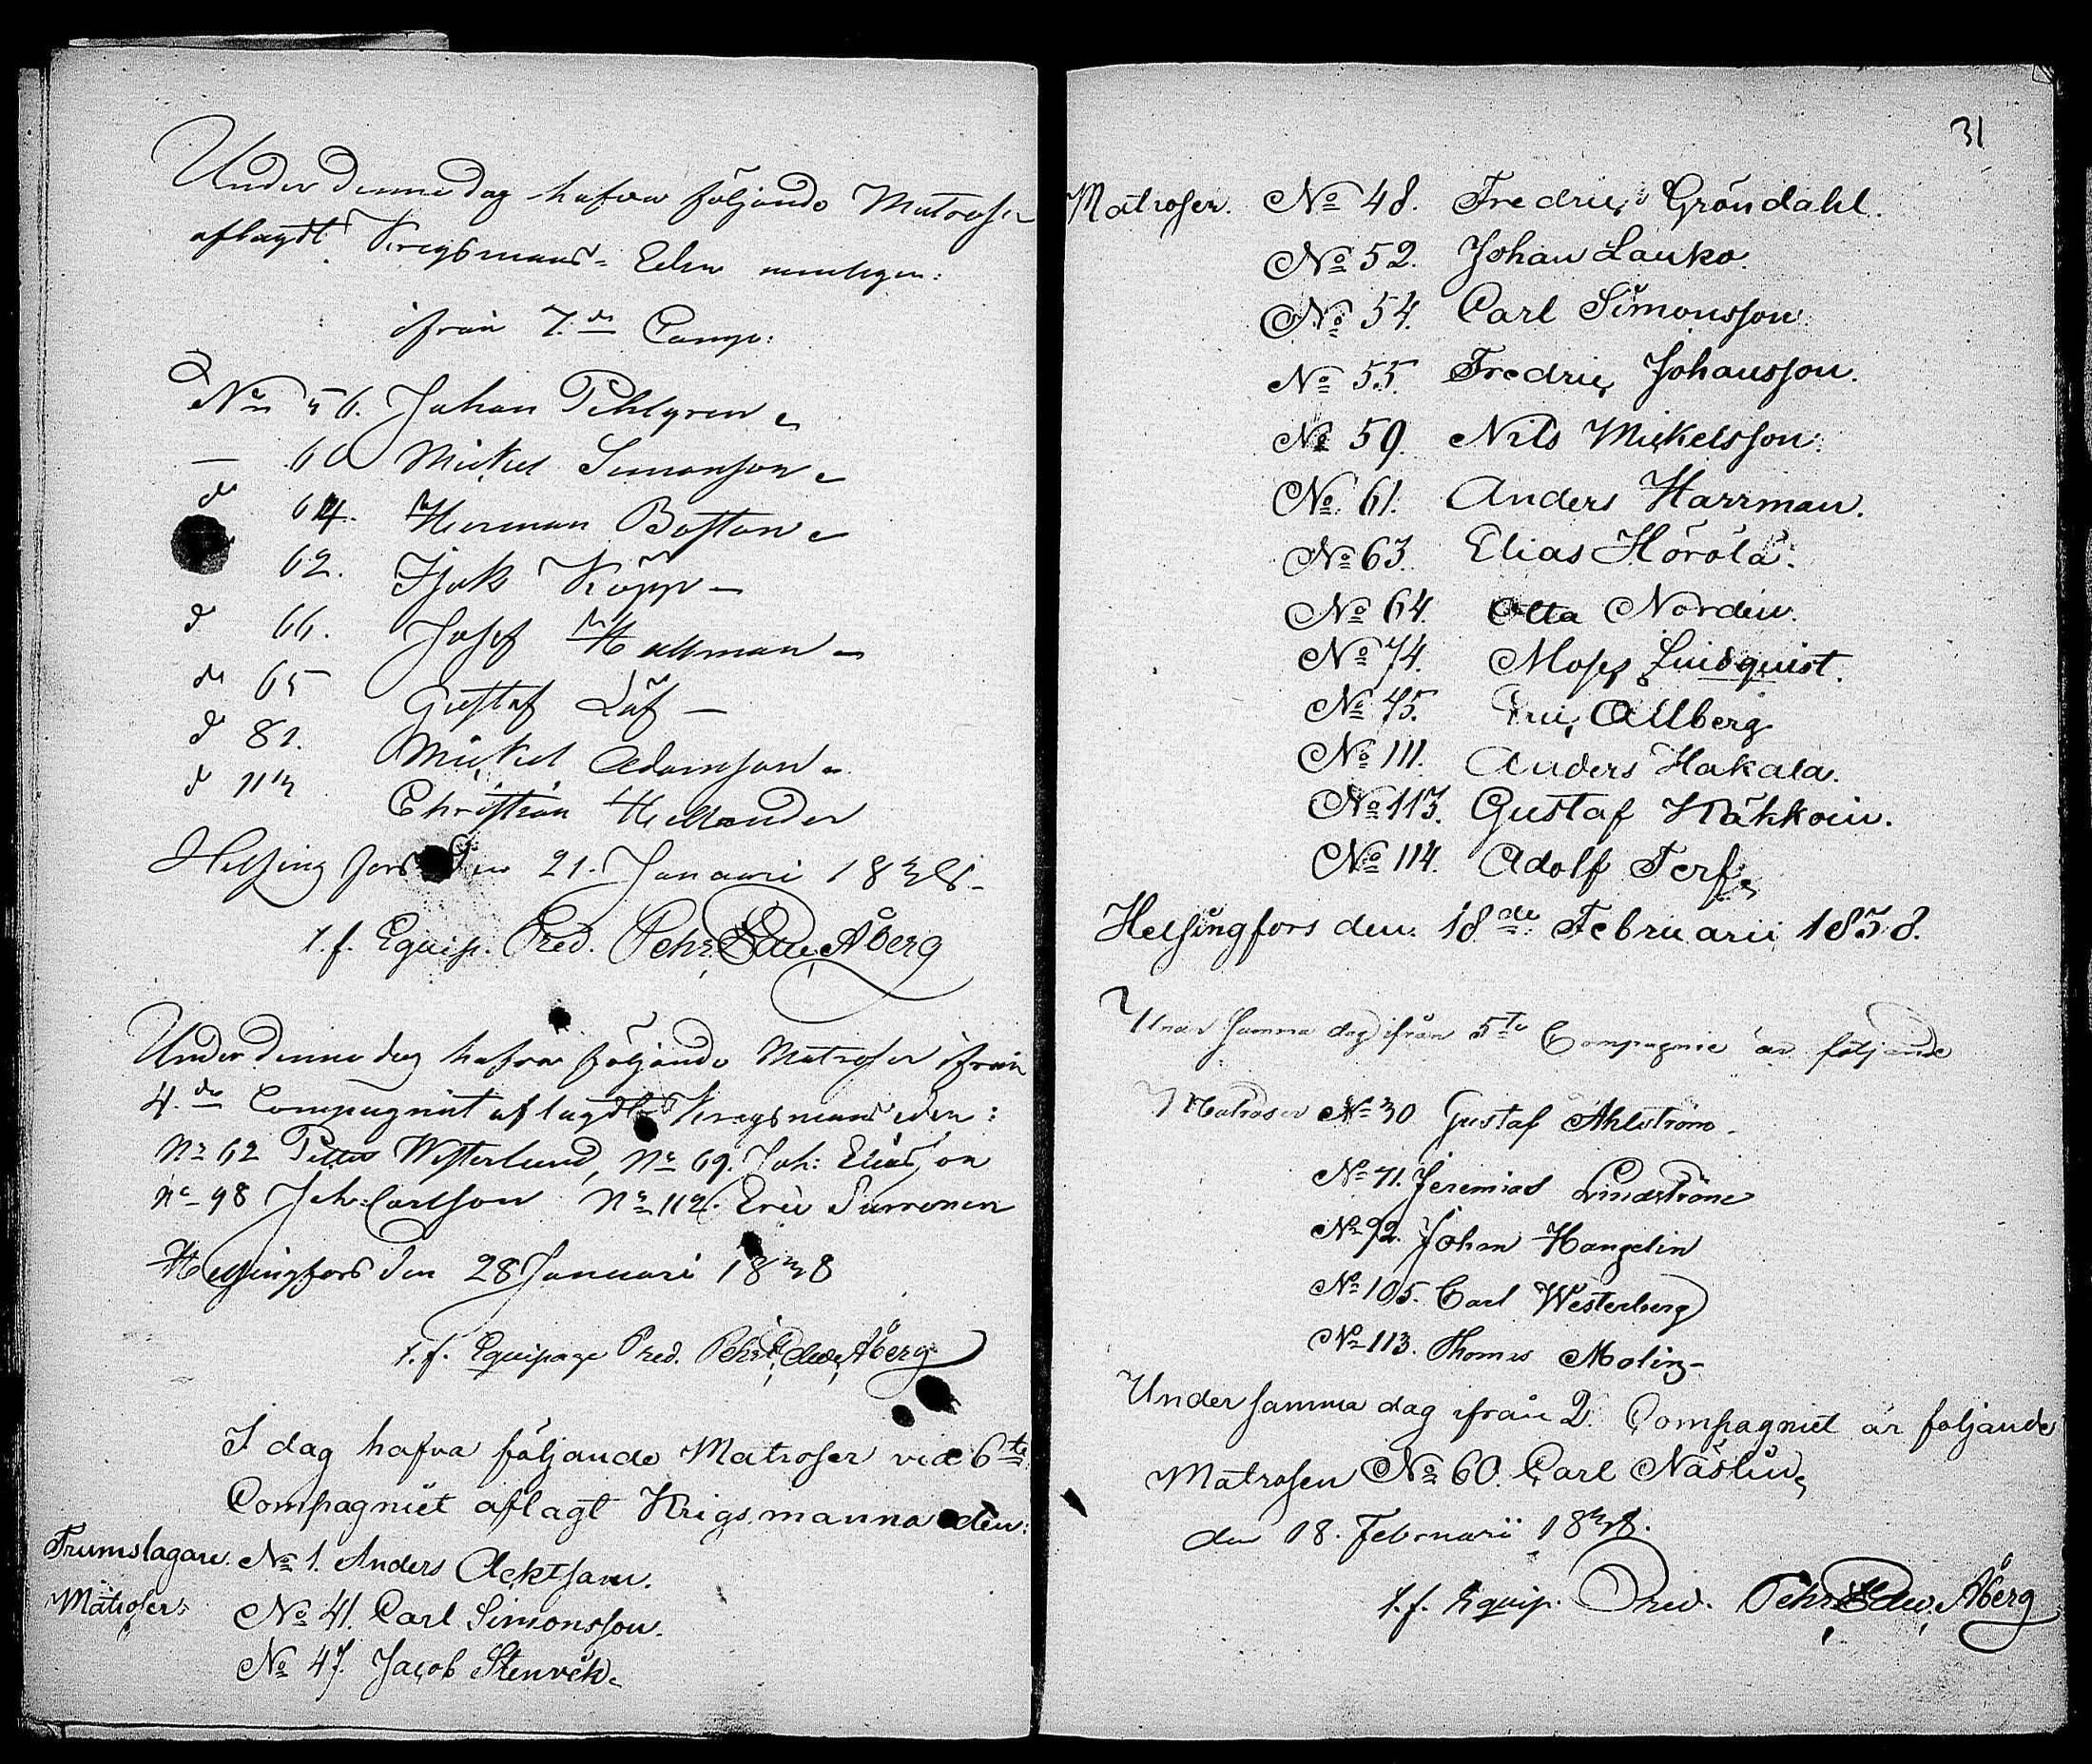 Under denne dag hafva följande Matroser
aflagdt Krigsmans-Eden nemligen:
ifrån 7.de Comp:
No 56. Johan Pihlgren
— 60 Mickel Simonson
do 614. Herman Boston
62. Isak Köpp —
do 66. Josef Hallman —
do 65 Gustaf Löf —
do 81. Mickel Adamson
do 113 Christian Hellander
Helsingfors den 21. Januari 1838.
t.f. Equip. Pred. Pehr Edv. Åberg
Under denne dag hafva följande Matroser ifrån
4.de Compagniet aflagdt Krigsmans eden:
No 62 Petter Westerlund, No 69. Joh: Eliasson
No 98 Joh: Carlson No 112. Eric Surronen
Helsingfors den 28 Januari 1838
t.f. Equipage Pred. Pehr Edv. Åberg
I dag hafva följande Matroser vid 6te
Compagniet aflagt Krigsmanna eden:
Trumslagare No 1. Anders Acktsam.
Matroser No 41. Carl Simonsson.
No 47. Jacob Stenvik.
31
Matroser. No 48. Fredric Gröndahl.
No 52. Johan Lauko.
No 54. Carl Simonsson.
No 55. Fredric Johansson.
No 59. Nils Mickelsson.
No 61. Anders Harrman.
No 63. Elias Hörölä.
No 64. Otto Norden.
No 74. Moses Lindquist.
No 75. Eric Allberg
No 111. Anders Hakala.
No 113. Gustaf Hähkoin.
No 114. Adolf Terf.
Helsingfors den 18de Februarii 1838.
Under samma dag ifrån 5te Compagnie är följande
Matroser No 30 Gustaf Ahlström.
No 71. Jeremias Lindström
No 92. Johan Hangelin
No 105. Carl Westerberg
No 113. Thomas Molin
Under samma dag ifrån 2. Compagniet är följande
Matrosen No 60. Carl Näslun
den 18. Februarii 1838.
t.f. Equip. Pred. Pehr Edv. Åberg